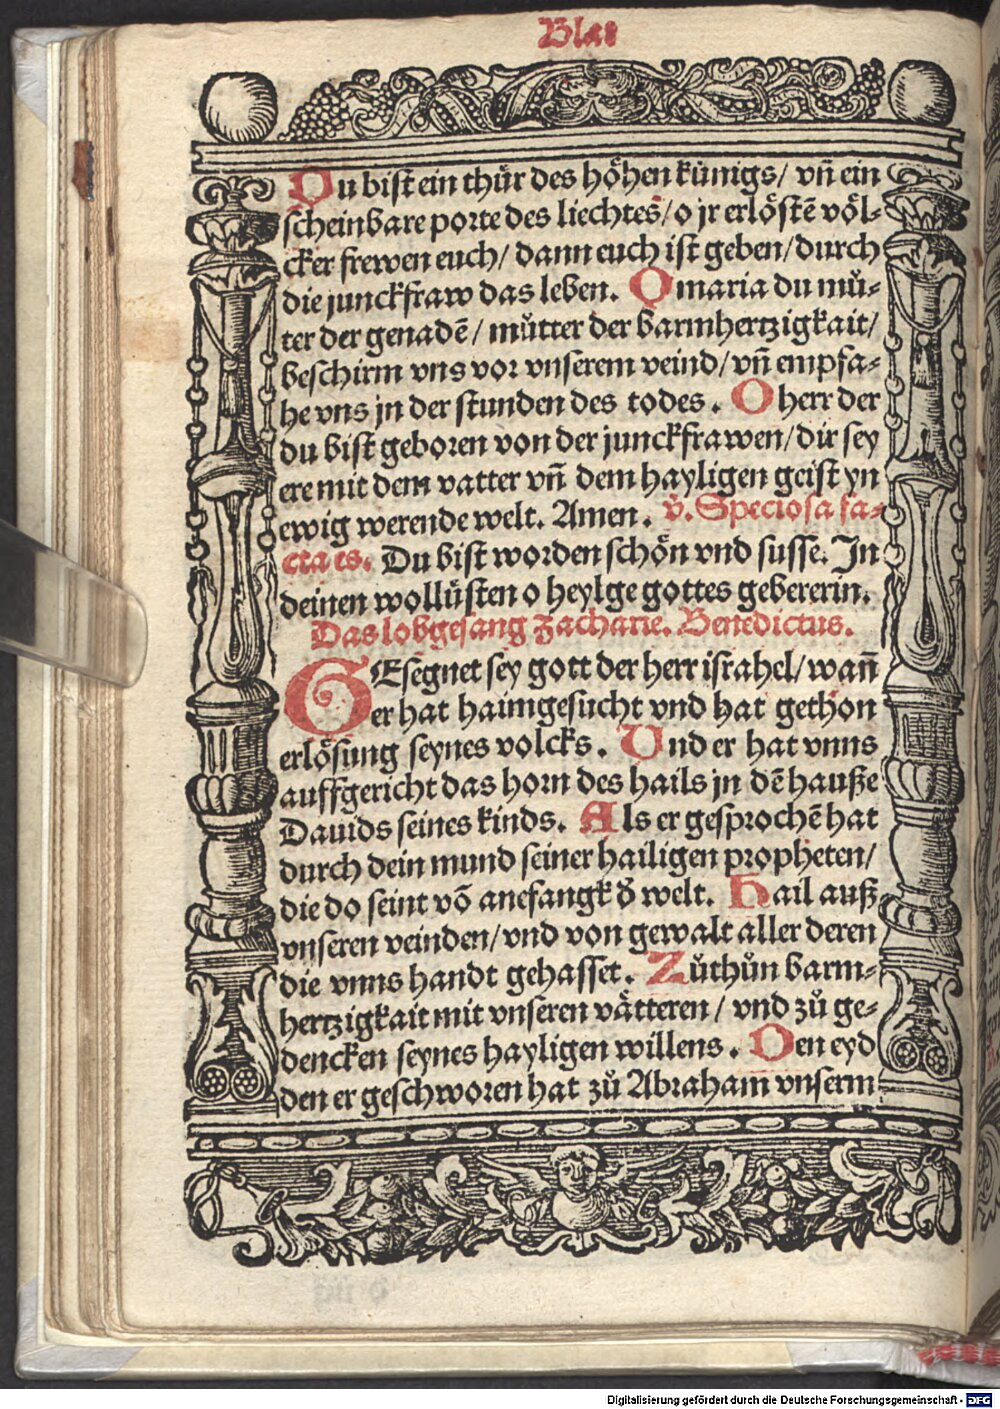 Blat
Du bist ein thür des höhen künigs/ vn̄ ein
scheinbare porte des liechtes/ o jr erlöstē völ-
cker frewen euch/ dann euch ist geben/ durch
die junckfraw das leben. O maria du mů-
ter der genadē/ můtter der barmhertzigkait/
beschirm vns vor vnserem veind/ vn̄ empfa-
he vns jn der stunden des todes. O herr der
du bist geboren von der junckfrawen/ dir sey
ere mit dem vatter vn̄ dem hayligen geist yn
ewig werende welt. Amen. v̊. Speciosa fa-
cta es. Du bist worden schön vnd susse. In
deinen wollüsten o heylge gottes gebererin.
Das lobgesang Zacharie. Benedictus.
GEsegnet sey gott der herr israhel/ wan̄
er hat haimgesucht vnd hat gethon
erlösung seynes volcks. Vnd er hat vnns
auffgericht das horn des hails jn dē hauße
Dauids seines kinds. Als er gesprochē hat
durch dein mund seiner hailigen propheten/
die do seint vō anefangk d̕ welt. Hail auß
vnseren veinden/ vnd von gewalt aller deren
die vnns handt gehasset. Zůthůn barm-
hertzigkait mit vnseren vätteren/ vnd zů ge-
dencken seynes hayligen willens. Den eyd
den er geschworen hat zů Abraham vnserm
Digitalisierung gefördert durch die Deutsche Forschungsgemeinschaft - DFG